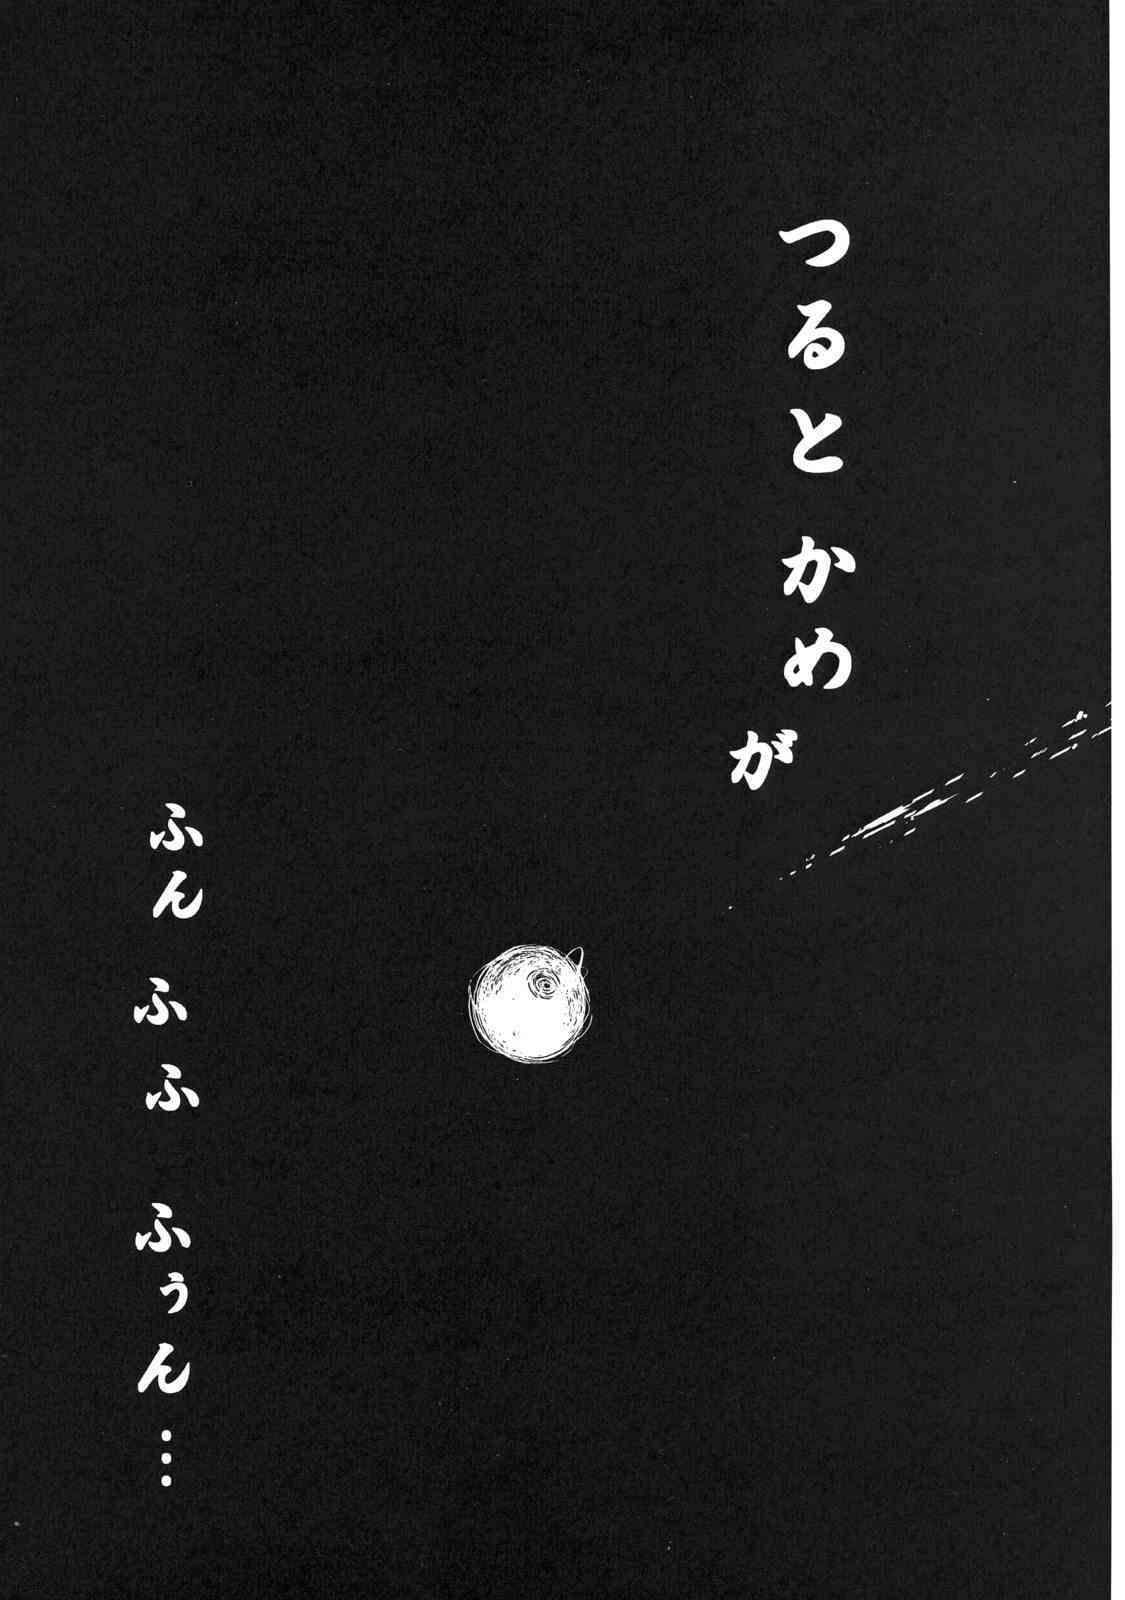 つるとかめが
ふんふふふぅん…